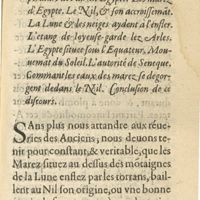 d'Egypte. Le Nil, & son accroissemẽt.
La Lune & des neiges aydent à l'enfler.
L'estang de loyeuse-garde lez Arles.
L'Egypte situee sous l'Equateur. Mou-
uemẽt du Soleil. L'autorité de Seneque.
Comment les eaux des marez se dégor-
gent dedans le Nil. Conclusion de ce
discours.
SAns plus nous attandre aux réue-
ries des Anciens, nous deuons te-
nir pour constant, & veritable, que les
Marez situez au dessus des mõtaignes
de la Lune enflez par les torrans, bail-
lent au Nil son origine, ou vne bonne